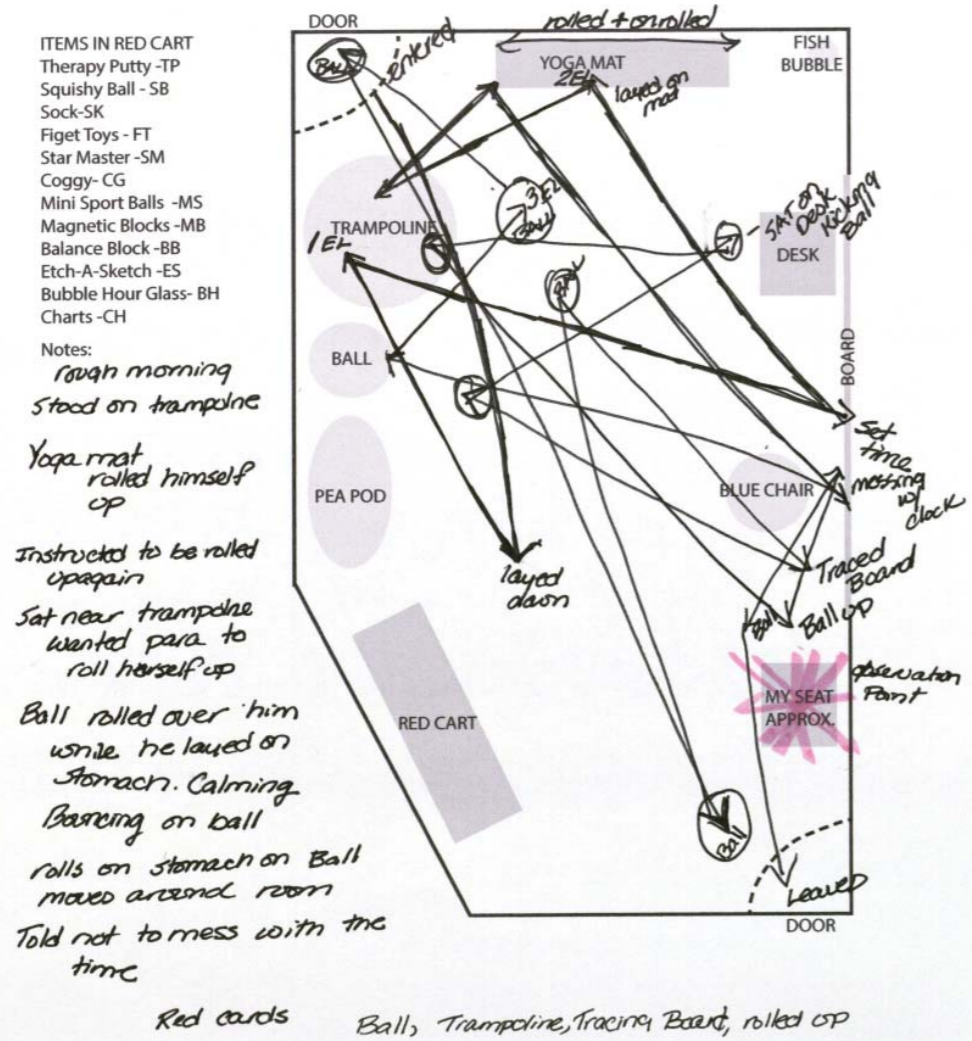 ITEMS IN RED CART
Therapy Putty -TP
Squishy Ball - SB
Sock-SK
Figet Toys - FT
Star Master -SM
Coggy- CG
Mini Sport Balls -MS
Magnetic Blocks -MB
Balance Block -BB
Etch-A-Sketch -ES
Bubble Hour Glass- BH
Charts -CH
Notes:
rough morning
Stood on trampolne
Yoga mat
rolled himself
up
Instructed to be rolled
up again
Sat near trampolne
wanted para to
roll herself up
Ball rolled over him
while he layed on
stomach. Calming
Bouncing on ball
rolls on stomach on Ball
moved around room
Told not to mess with the
time
Red cards
Ball, Trampoline, Tracing Board, rolled up
DOOR
Ball
entered
rolled + unrolled
YOGA MAT
2EL
layed on
mat
FISH
BUBBLE
TRAMPOLINE
1EL
3EL
Ball
Ball
SAT ON
DESK
Kicking
Ball
DESK
BALL
BOARD
Set
time
messing
w/
clock
PEA POD
BLUE CHAIR
layed
down
Traced
Board
Ball
Ball up
RED CART
MY SEAT
APPROX.
observation
Point
Ball
Leaved
DOOR